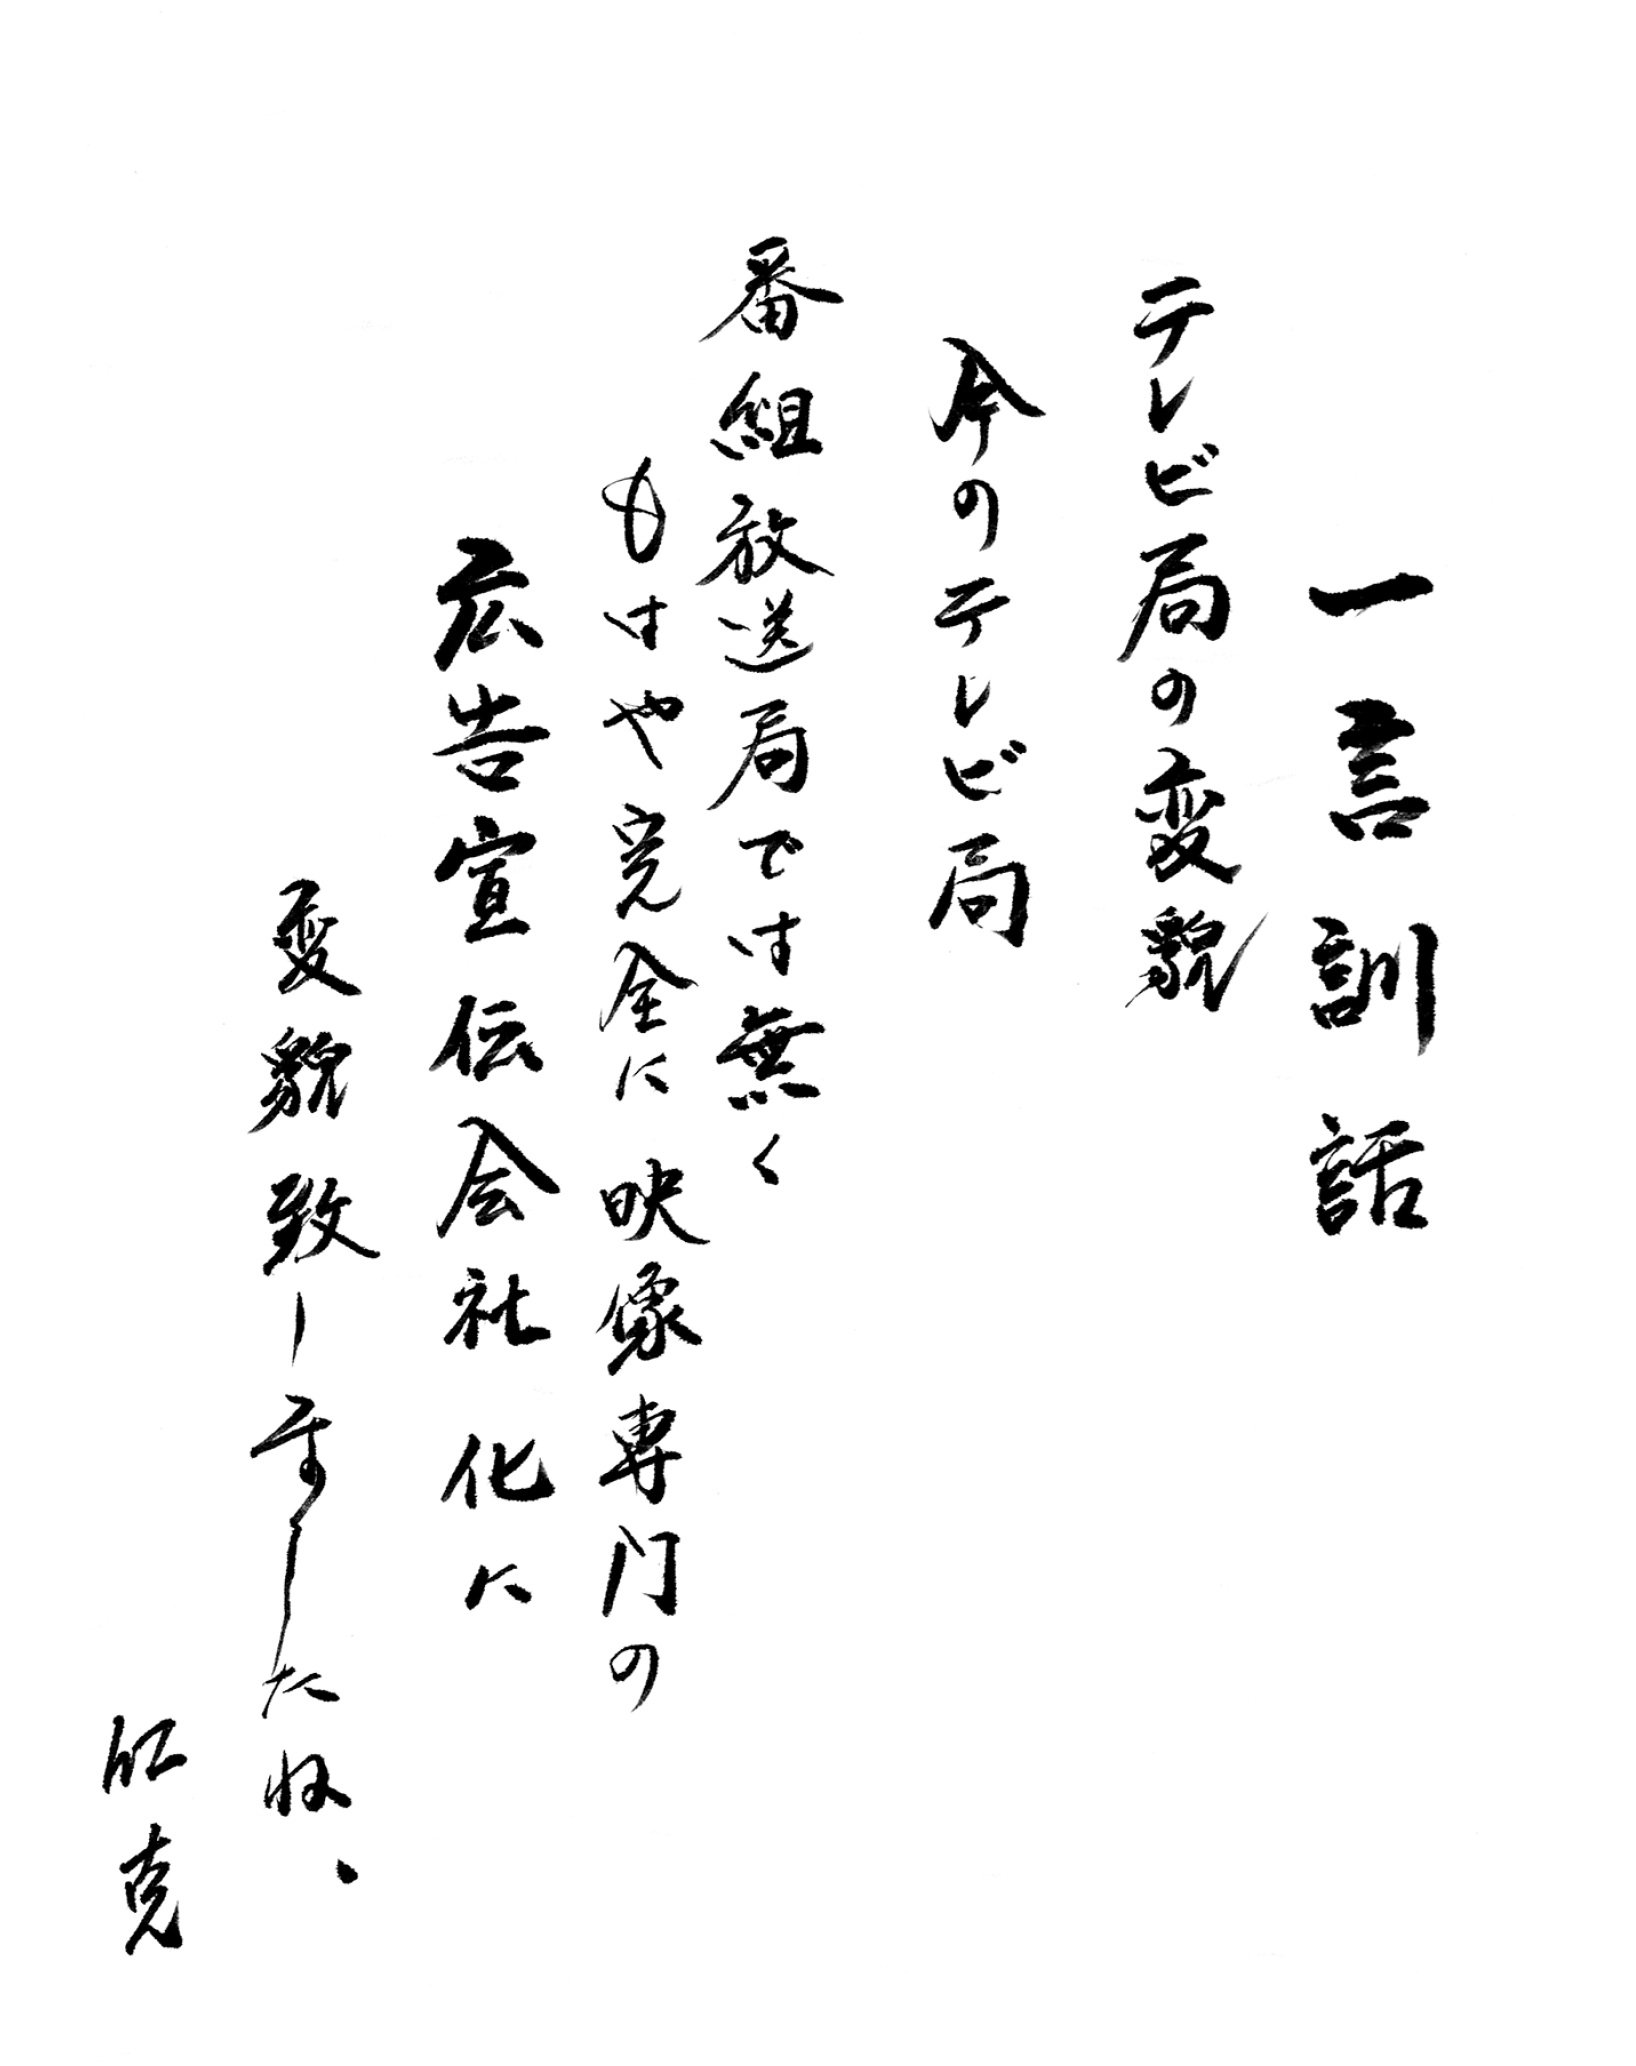 一言訓話
テレビ局の変貌
今のテレビ局
番組放送局では無く
もはや完全に映像専門の
広告宣伝会社化に
変貌致しましたね、
克